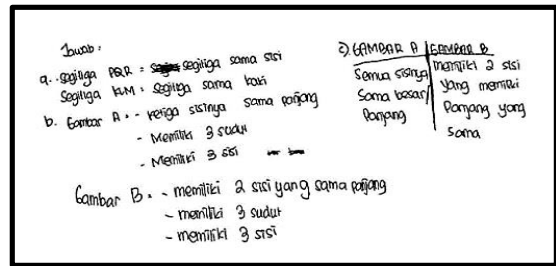 Jawab :
a. segitiga PQR = segitiga sama sisi
Segitiga KLM = segitiga sama kaki
b. Gambar A . - ketiga sisinya sama panjang
- Memiliki 3 sudut
- Memiliki 3 sisi
Gambar B . - memiliki 2 sisi yang sama panjang
- memiliki 3 sudut
- memiliki 3 sisi
c) GAMBAR A | GAMBAR B
Semua sisinya | memiliki 2 sisi
Sama besar/ | yang memiliki
Panjang | Panjang yang
Sama